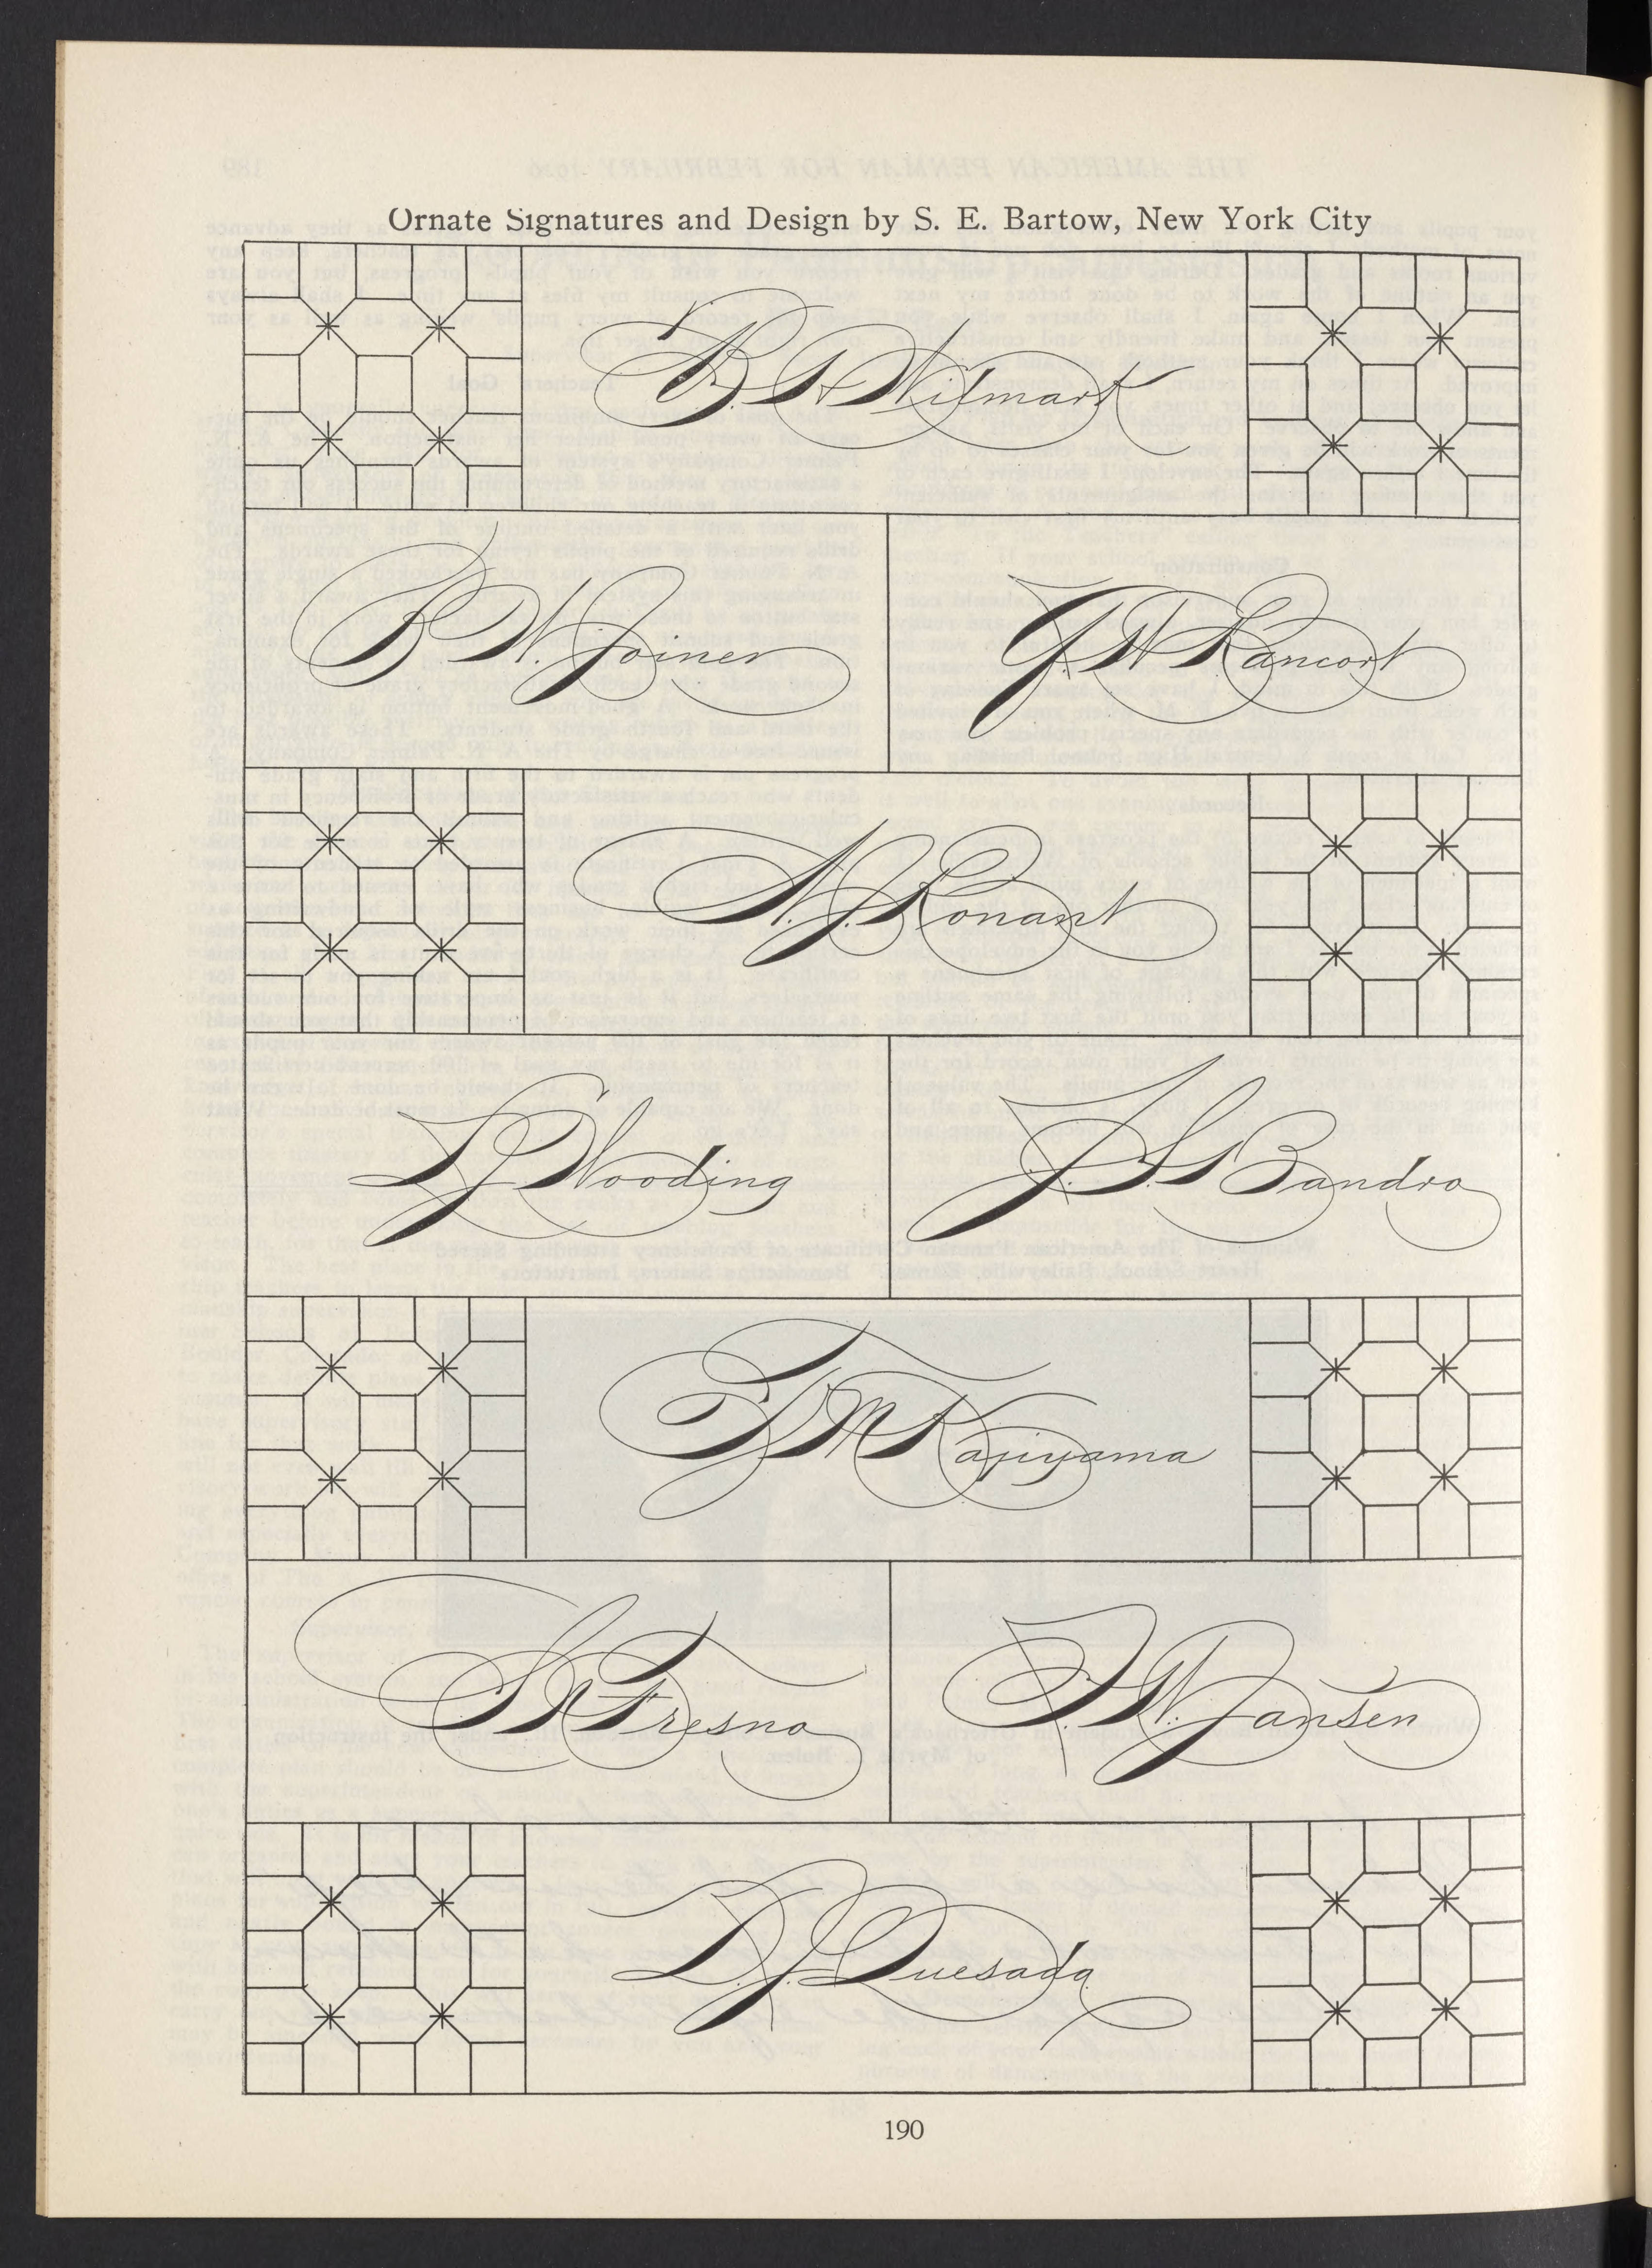 Ornate Signatures and Design by S. E. Bartow, New York City
B. H. Wilmark
B. W. Joiner
G. W. Rancort
N. J. Konant
L J Wooding
J. S. Bandro
T M Kajiyama
S N Fresno
T. W. Jansen
D. J. Quesada
190